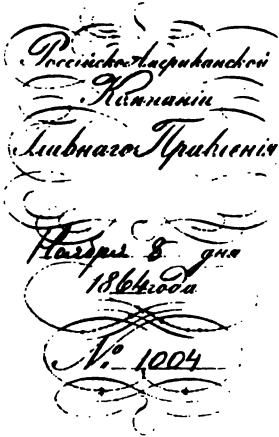 Россійско-Американской
Компаніи
Главнаго Правленія
Ноября 8 дня
1864 года
№ 1004